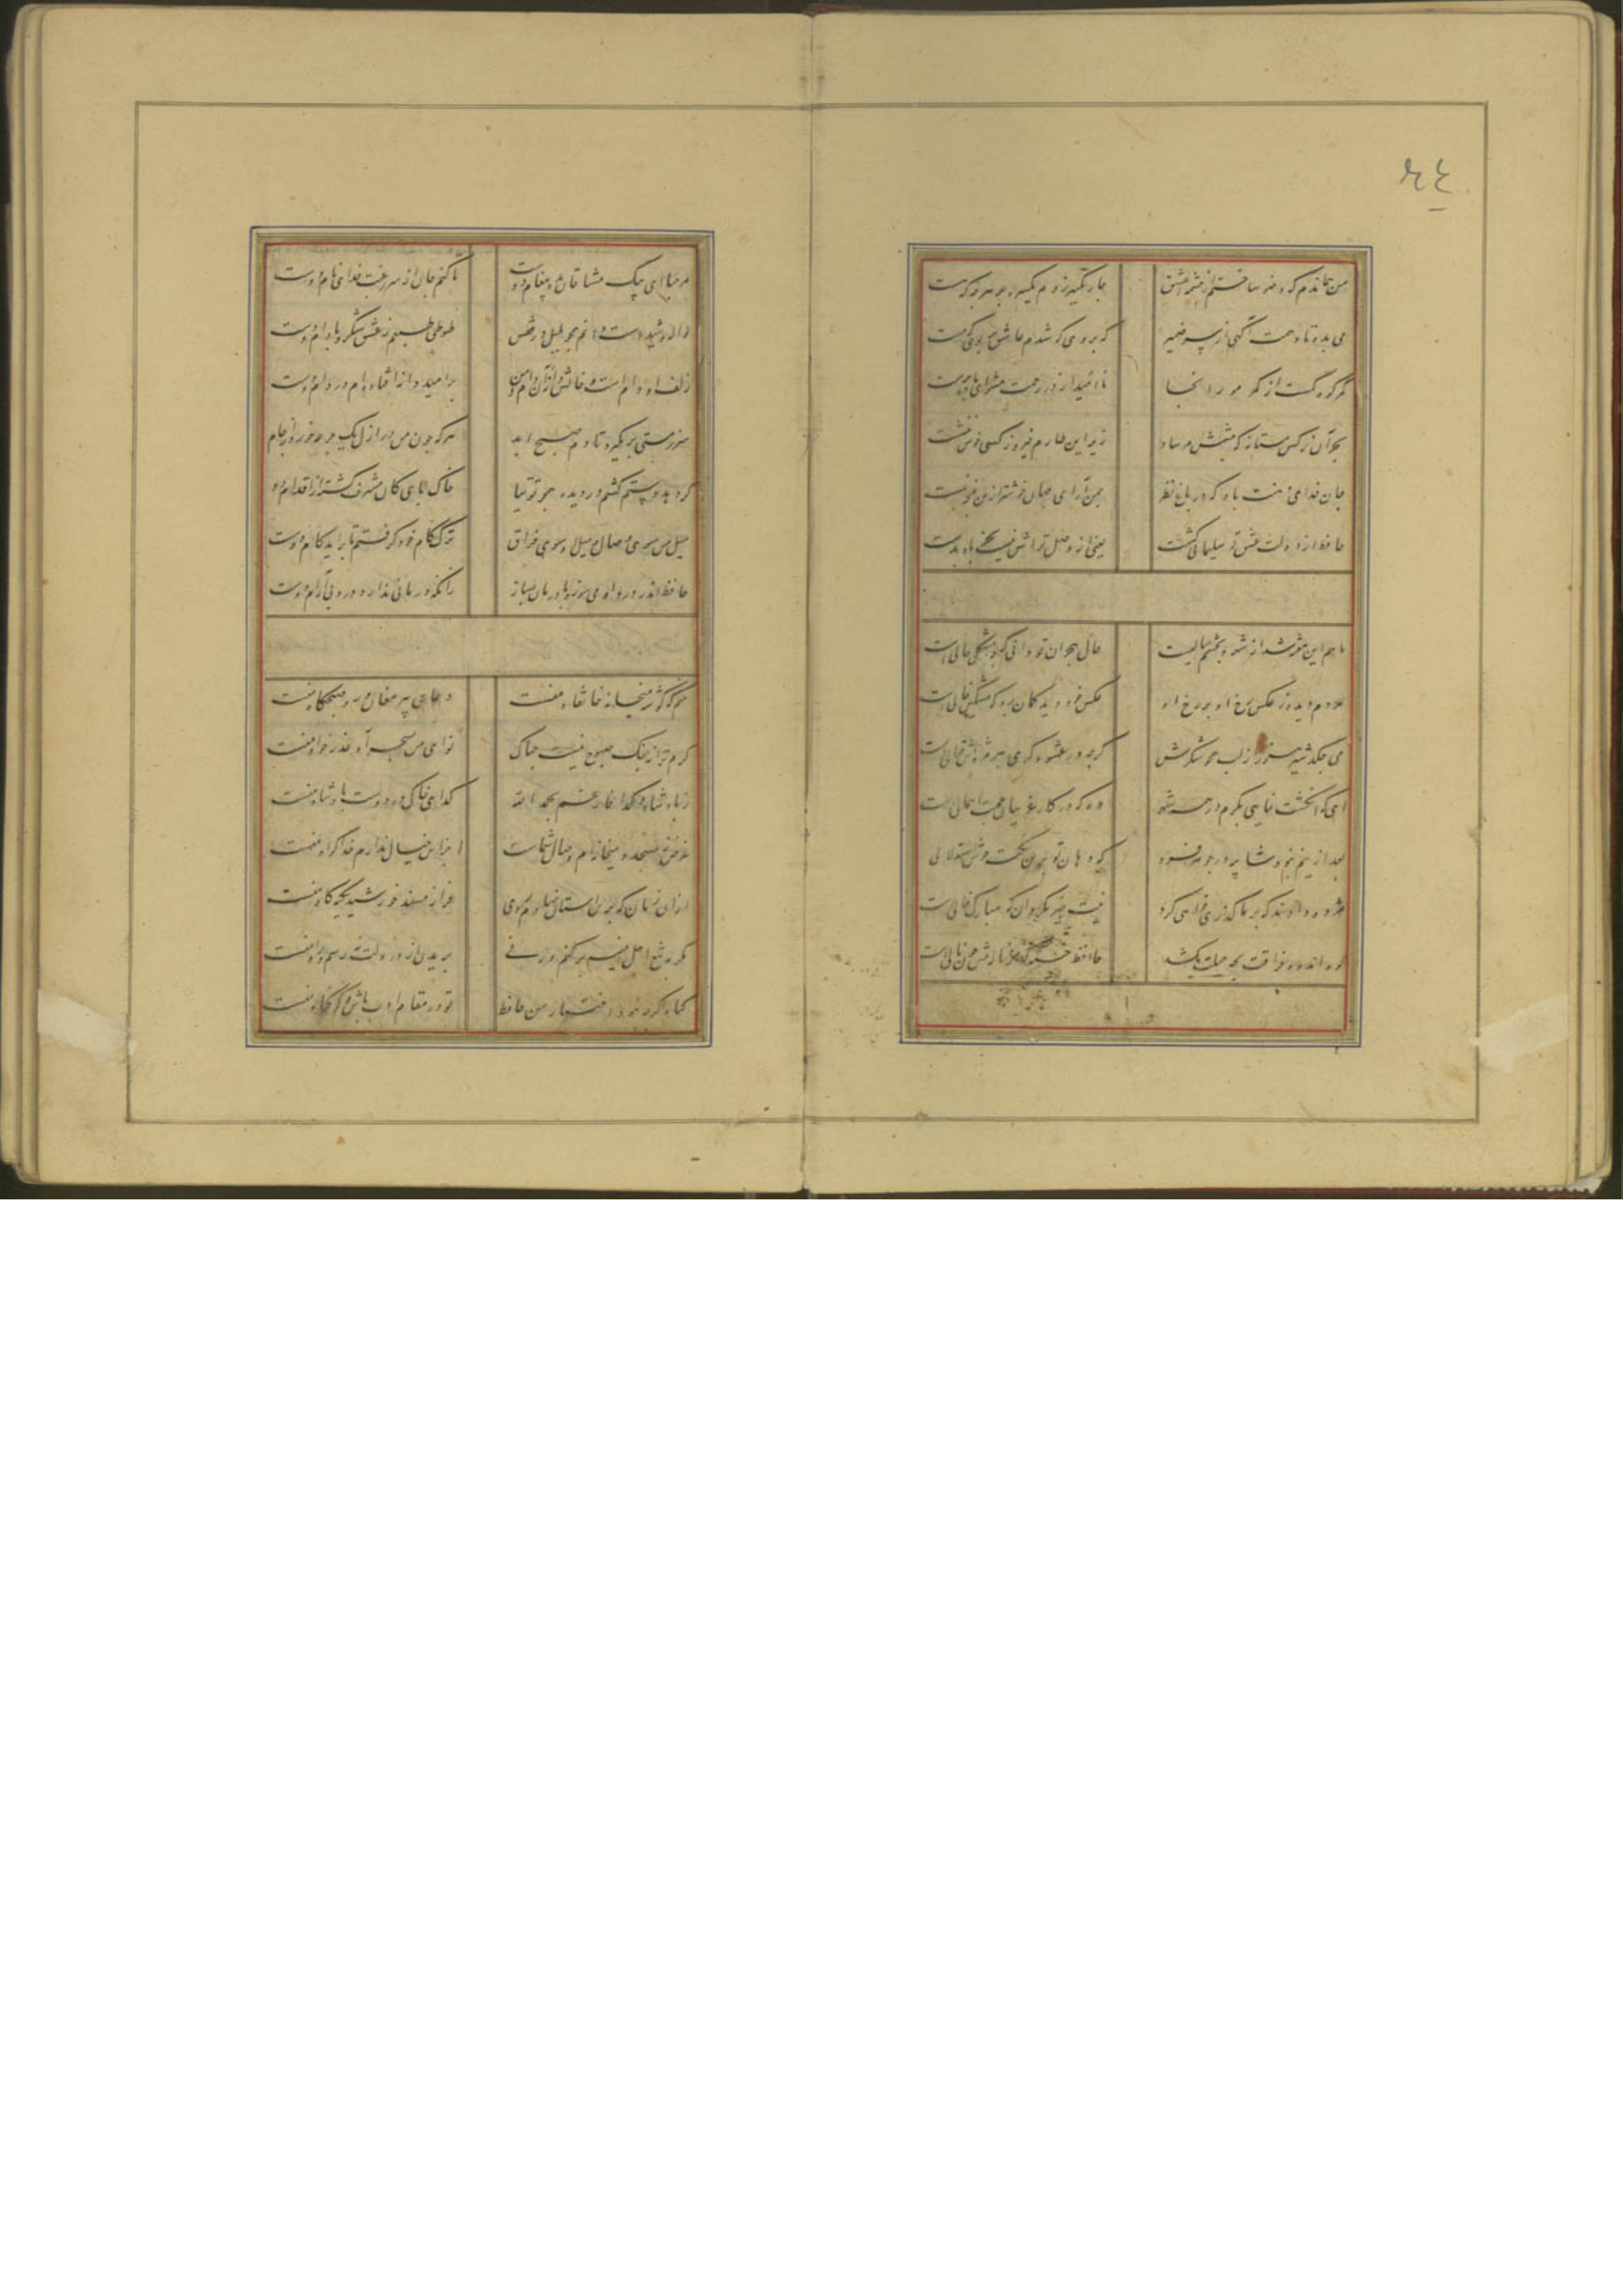 من هماندم که وضو ساختم از چشمه عشق چار تکبیر زدم یکسره بر هر چه که هست
می بده تا دهمت آگهی از سر ضمیر که بروی که شدم عاشق و بر بوی که مست
کمر کوه کمست از کمر مور اینجا ناامید از در رحمت مشو ای باده پرست
بجز آن نرکس مستانه که چشمش مرساد زیر این طارم فیروزه کسی خوش ننشست
جان فدای دهنت باد که در باغ نظر چمن آرای جهان خوشتر ازین غنچه نبست
حافظ از دولت عشق تو سلیمانی گشت یعنی از وصل تواش نیست بجز باد بدست
ماهم این هفته شد از شهر و بچشمم سالیست حال هجران تو چه دانی که چه مشکل حالی است
مردم دیده ز عکس رخ او در رخ او عکس خود دید گمان برد که مشکین خالی است
می چکد شیر هنوز از لب همچو شکرش گرچه در عشوه گری هر مژه اش قتالی است
ای که انگشت نمایی بکرم در همه شهر وه که در کار غریبان عجبت اهمالی است
بعد ازینم نبود شایبه در جوهر فرد که دهان تو برین نکته خوش استدلالی
مژده دادند که بر ما گذری خواهی کرد نیت خیر مگردان که مبارک فالی است
کوه اندوه فراقت بچه حیلت بکشد حافظ خسته که از ناله تنش چون نالی است
مرحبا ای پیک مشتاقان بده پیغام دوست تا کنم جان از سر رغبت فدای نام دوست
واله و شیداست دایم همچو بلبل در قفس طوطی طبعم ز عشق شکر و بادام دوست
زلف او دام است و خالش دانه آن دام و من بر امید دانه افتاده ام در دام دوست
سر ز مستی بر نگیرد تا دم صبح ابد هر که چون من در ازل یک جرعه خورد از جام
گر دهد دستم کشم در دیده همچو توتیا خاک پای کان مشرف گشته از اقدام دوست
میل من سوی وصال و میل او سوی فراق ترک کام خود گرفتم تا براید کام دوست
حافظ اندر درد او می سوز و با درمان مساز زانکه درمانی ندارد درد بی آرام دوست
منم که گوشه میخانه خانقاه منست دعای پیر مغان ورد صبحگاه منست
گرم ترانه چنگ صبوح نیست چه باک نوای من بسحر آه عذر خواه منست
ز پادشاه و گدا فارغم بحمد الله گدای خاک در دوست پادشاه منست
غرض ز مسجد و میخانه ام وصال شماست جز این خیال ندارم خدا گواه منست
از ان زمان که برین استان نهادم روی فراز مسند خورشید تکیه گاه منست
مگر به تیغ اجل خیمه بر کنم ورنی رمیدن از در دولت نه رسم و راه منست
گناه اگرچه نبود اختیار من حافظ تو در مقام ادب باش و گو گناه منست